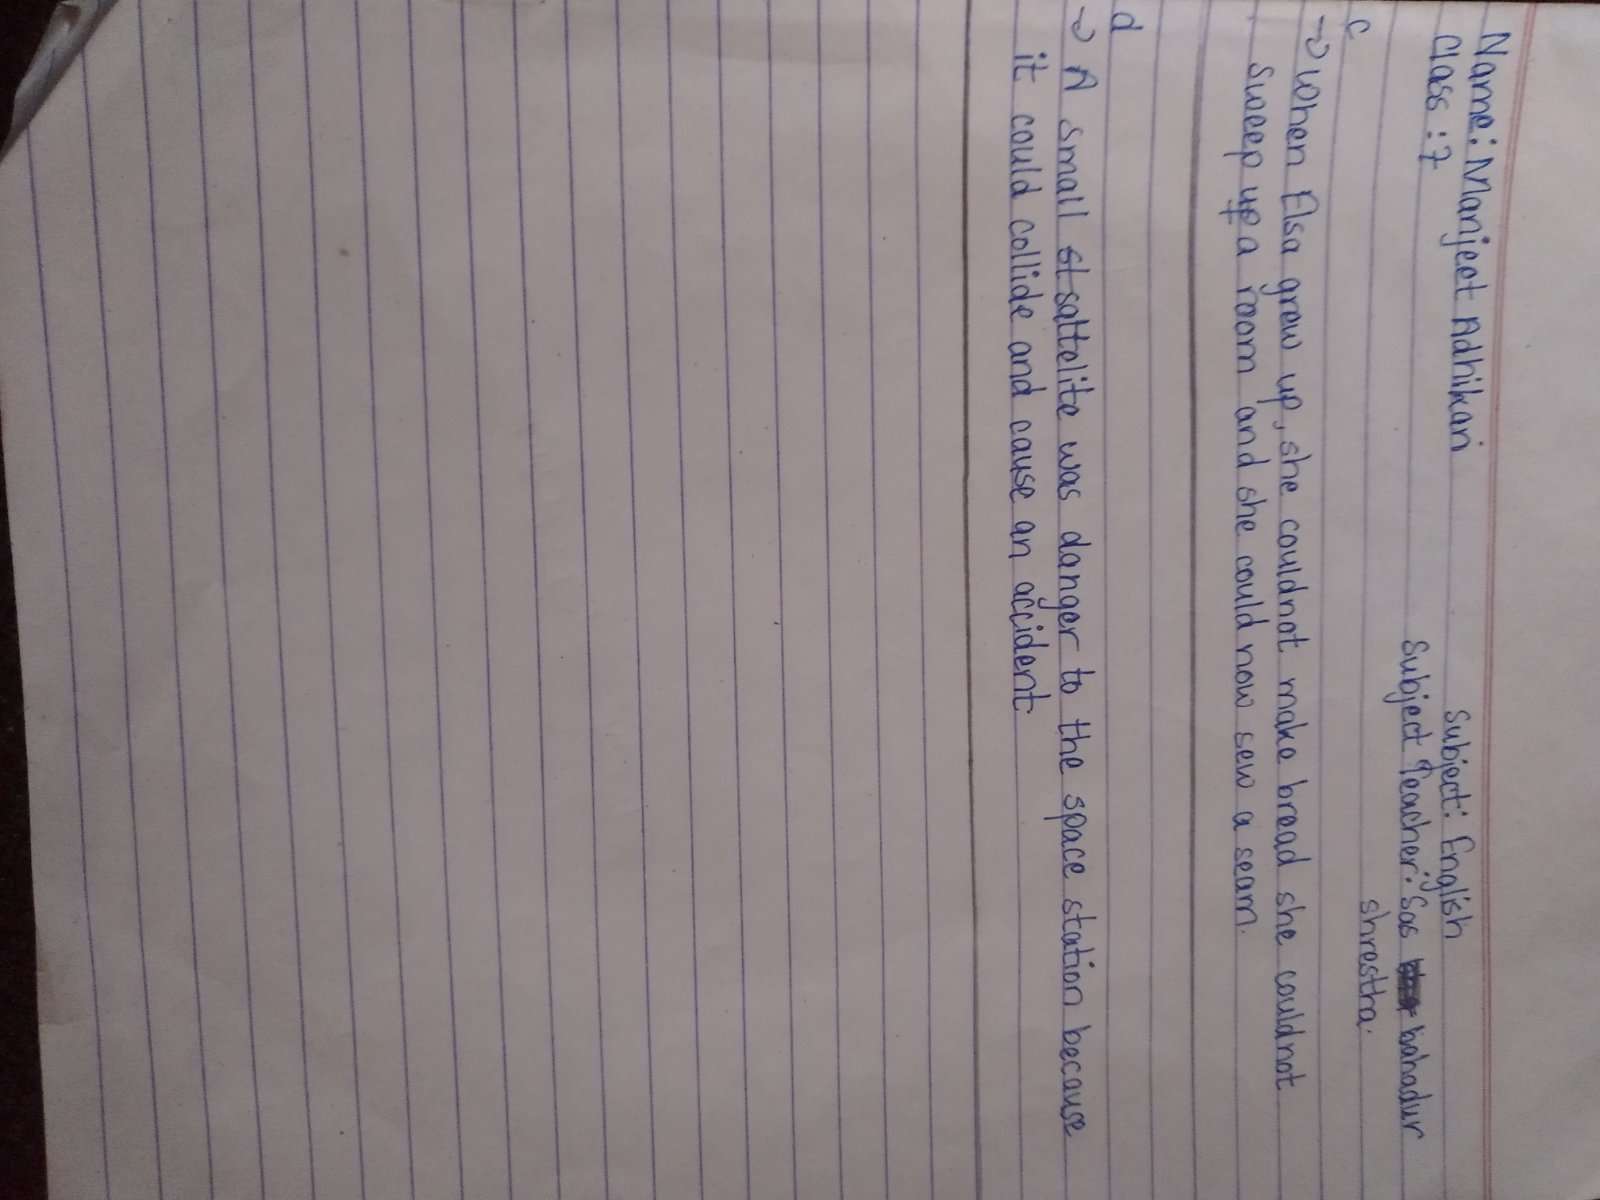 Name: Manjeet Adhikari
Subject: English
Class : 7
Subject Teacher: Sas bahadur
shrestha.
c
→ When Elsa grew up, she couldnot make bread she couldnot
sweep up a room and she could now sew a seam.
d
→ A small st sattelite was danger to the space station because
it could collide and cause an accident.